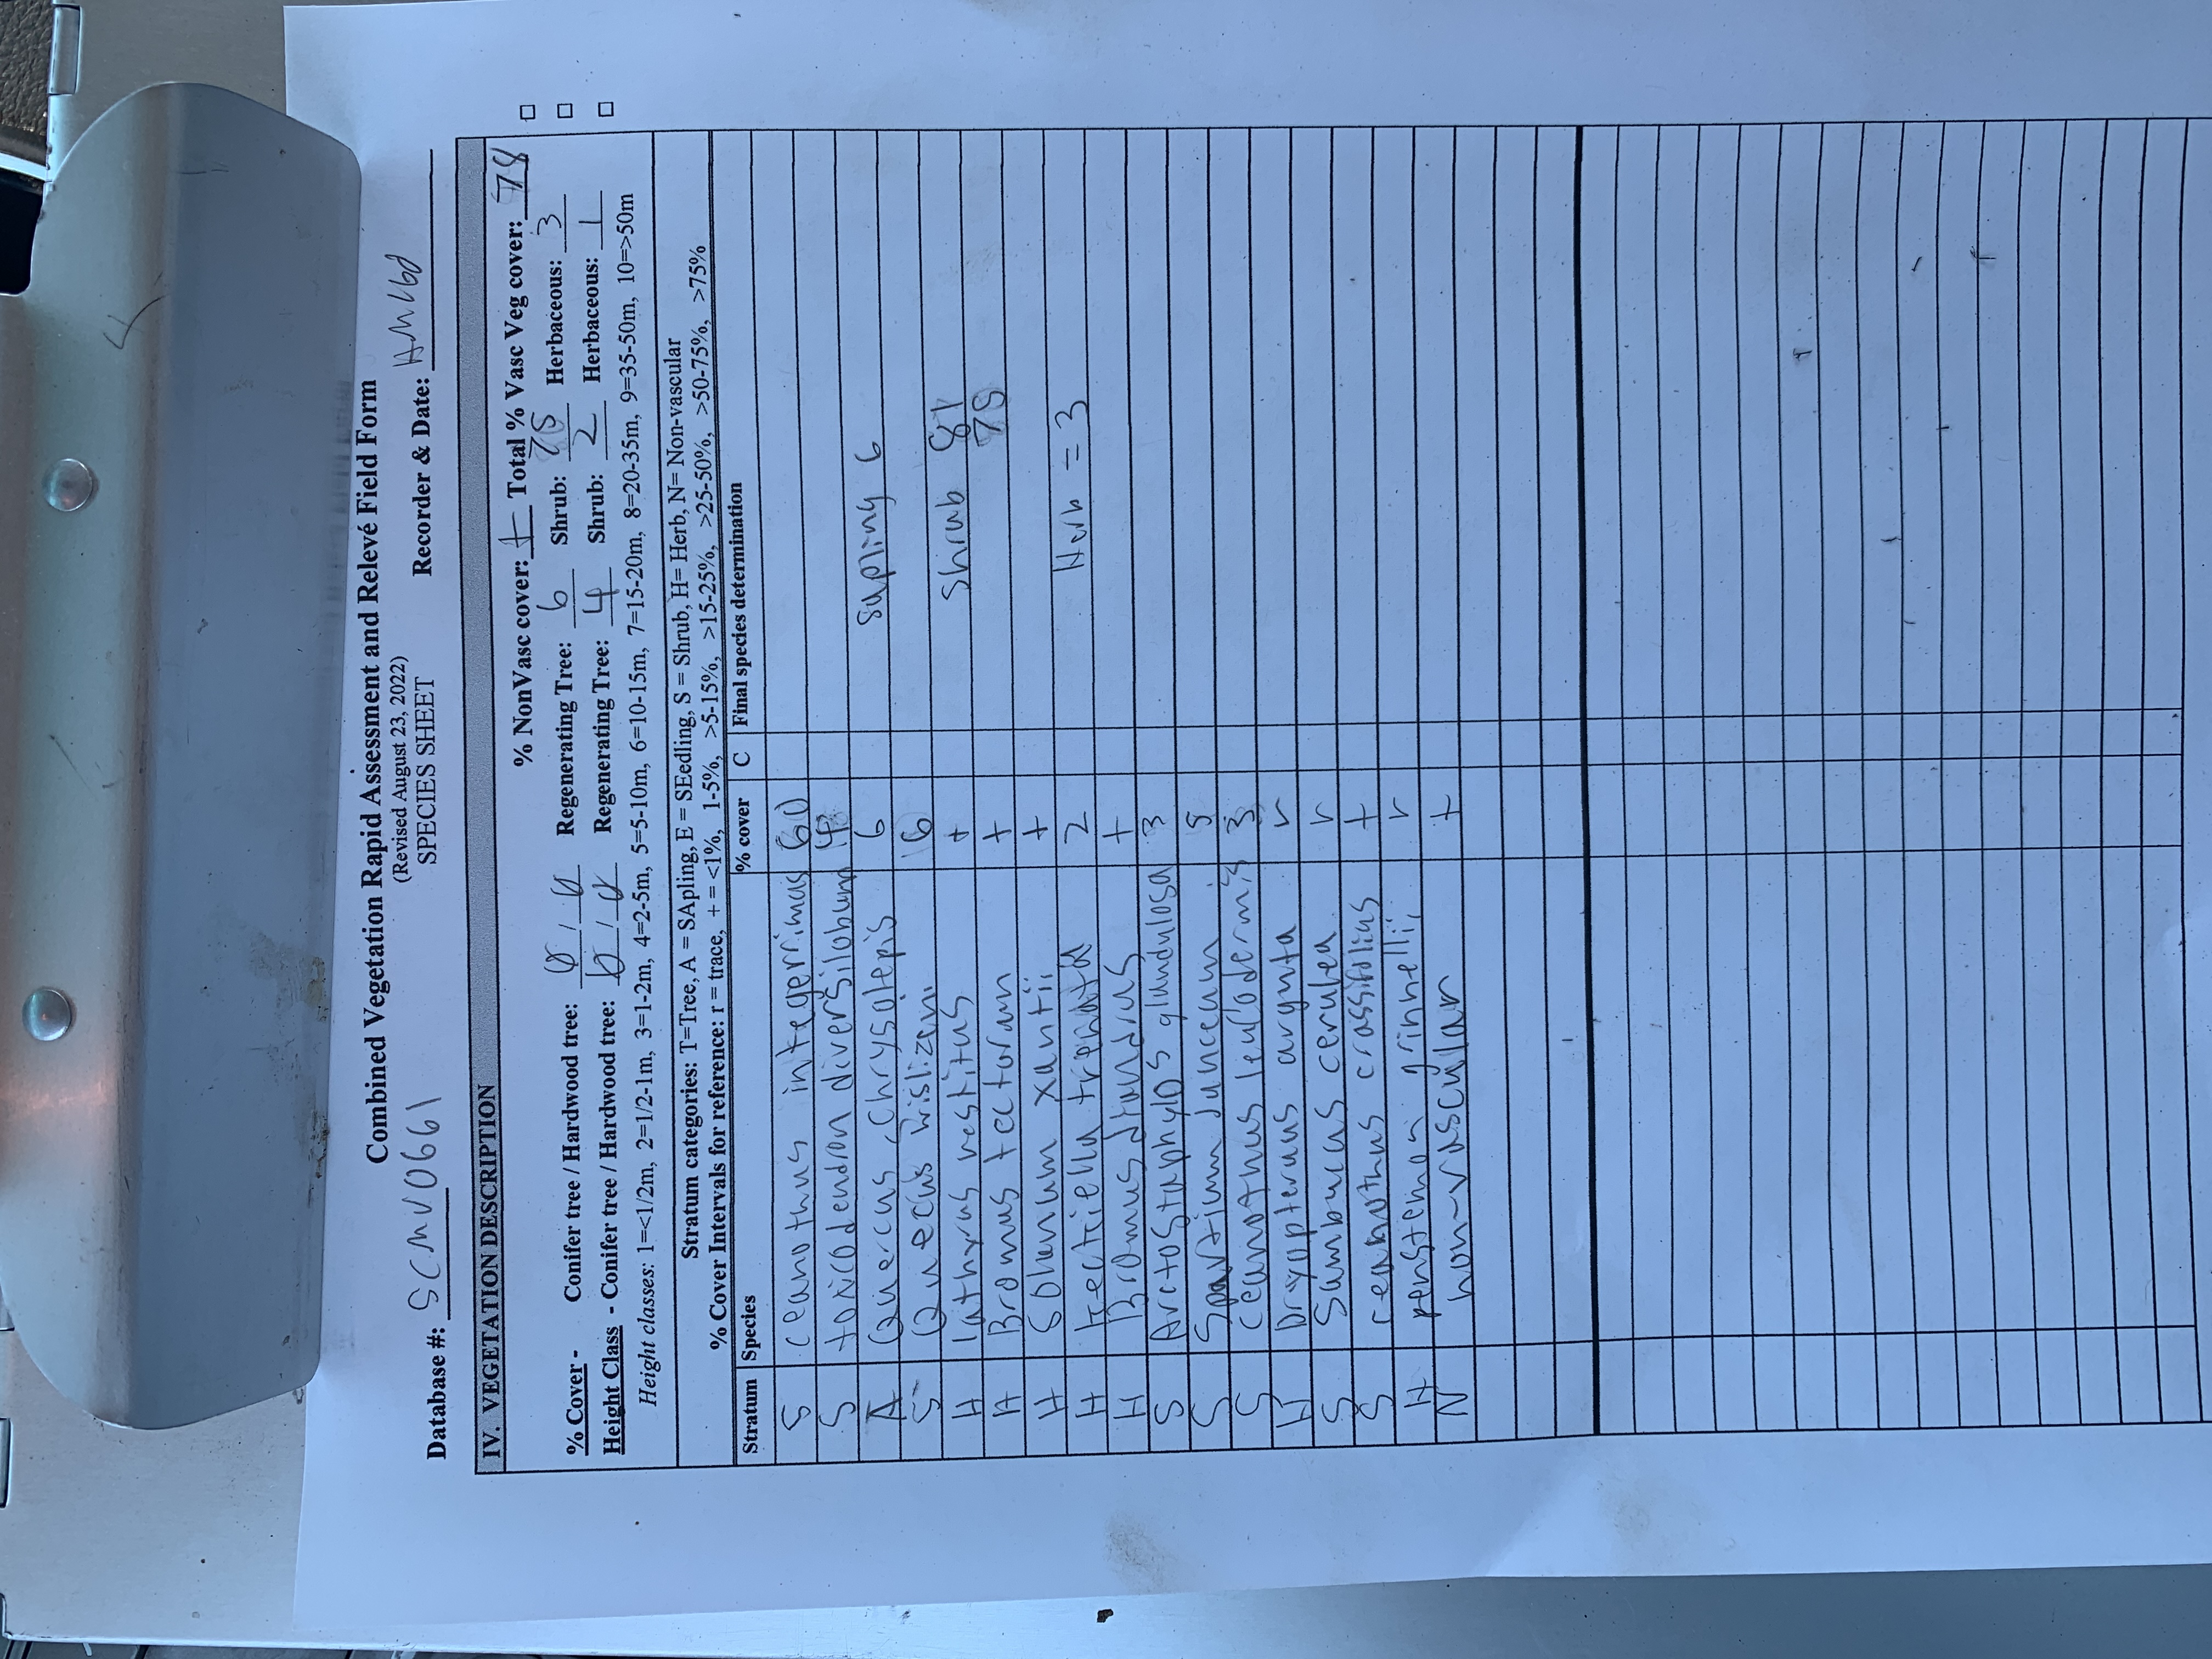 Combined Vegetation Rapid Assessment and Relevé Field Form
(Revised August 23, 2022)
SPECIES SHEET
Database #: SCMV0661 Recorder & Date:
IV. VEGETATION DESCRIPTION
% NonVasc cover: + Total % Vasc Veg cover: 78
% Cover - Conifer tree / Hardwood tree: 0 / 0 Regenerating Tree: 6 Shrub: 75 Herbaceous: 3
Height Class - Conifer tree / Hardwood tree: 0 / 0 Regenerating Tree: 4 Shrub: 2 Herbaceous: 1
Height classes: 1=<1/2m, 2=1/2-1m, 3=1-2m, 4=2-5m, 5=5-10m, 6=10-15m, 7=15-20m, 8=20-35m, 9=35-50m, 10=>50m
Stratum categories: T=Tree, A = SApling, E = SEedling, S = Shrub, H= Herb, N= Non-vascular
% Cover Intervals for reference: r = trace, + = <1%, 1-5%, >5-15%, >15-25%, >25-50%, >50-75%, >75%
Stratum Species % cover C Final species determination
S ceanothus integerrimus 60
S toxicodendron diversilobum 4
A Quercus chrysolepis 6 sapling 6
S Quecus wislizeni 6
H lathyrus vestitus + Shrub 81
H Bromus tectorum + 75
H Solunum xantii +
H keckiella 2 Herb = 3
H Bromus diandrus +
S Arctostaphylos glandulosa 3
S Spartium junceum 5
S ceanothus leucodermis 3
H Dryopterus arguta r
S Sambucus cerulea r
S ceanothus crassifolius +
H penstemon grinnelli r
N non-vascular +